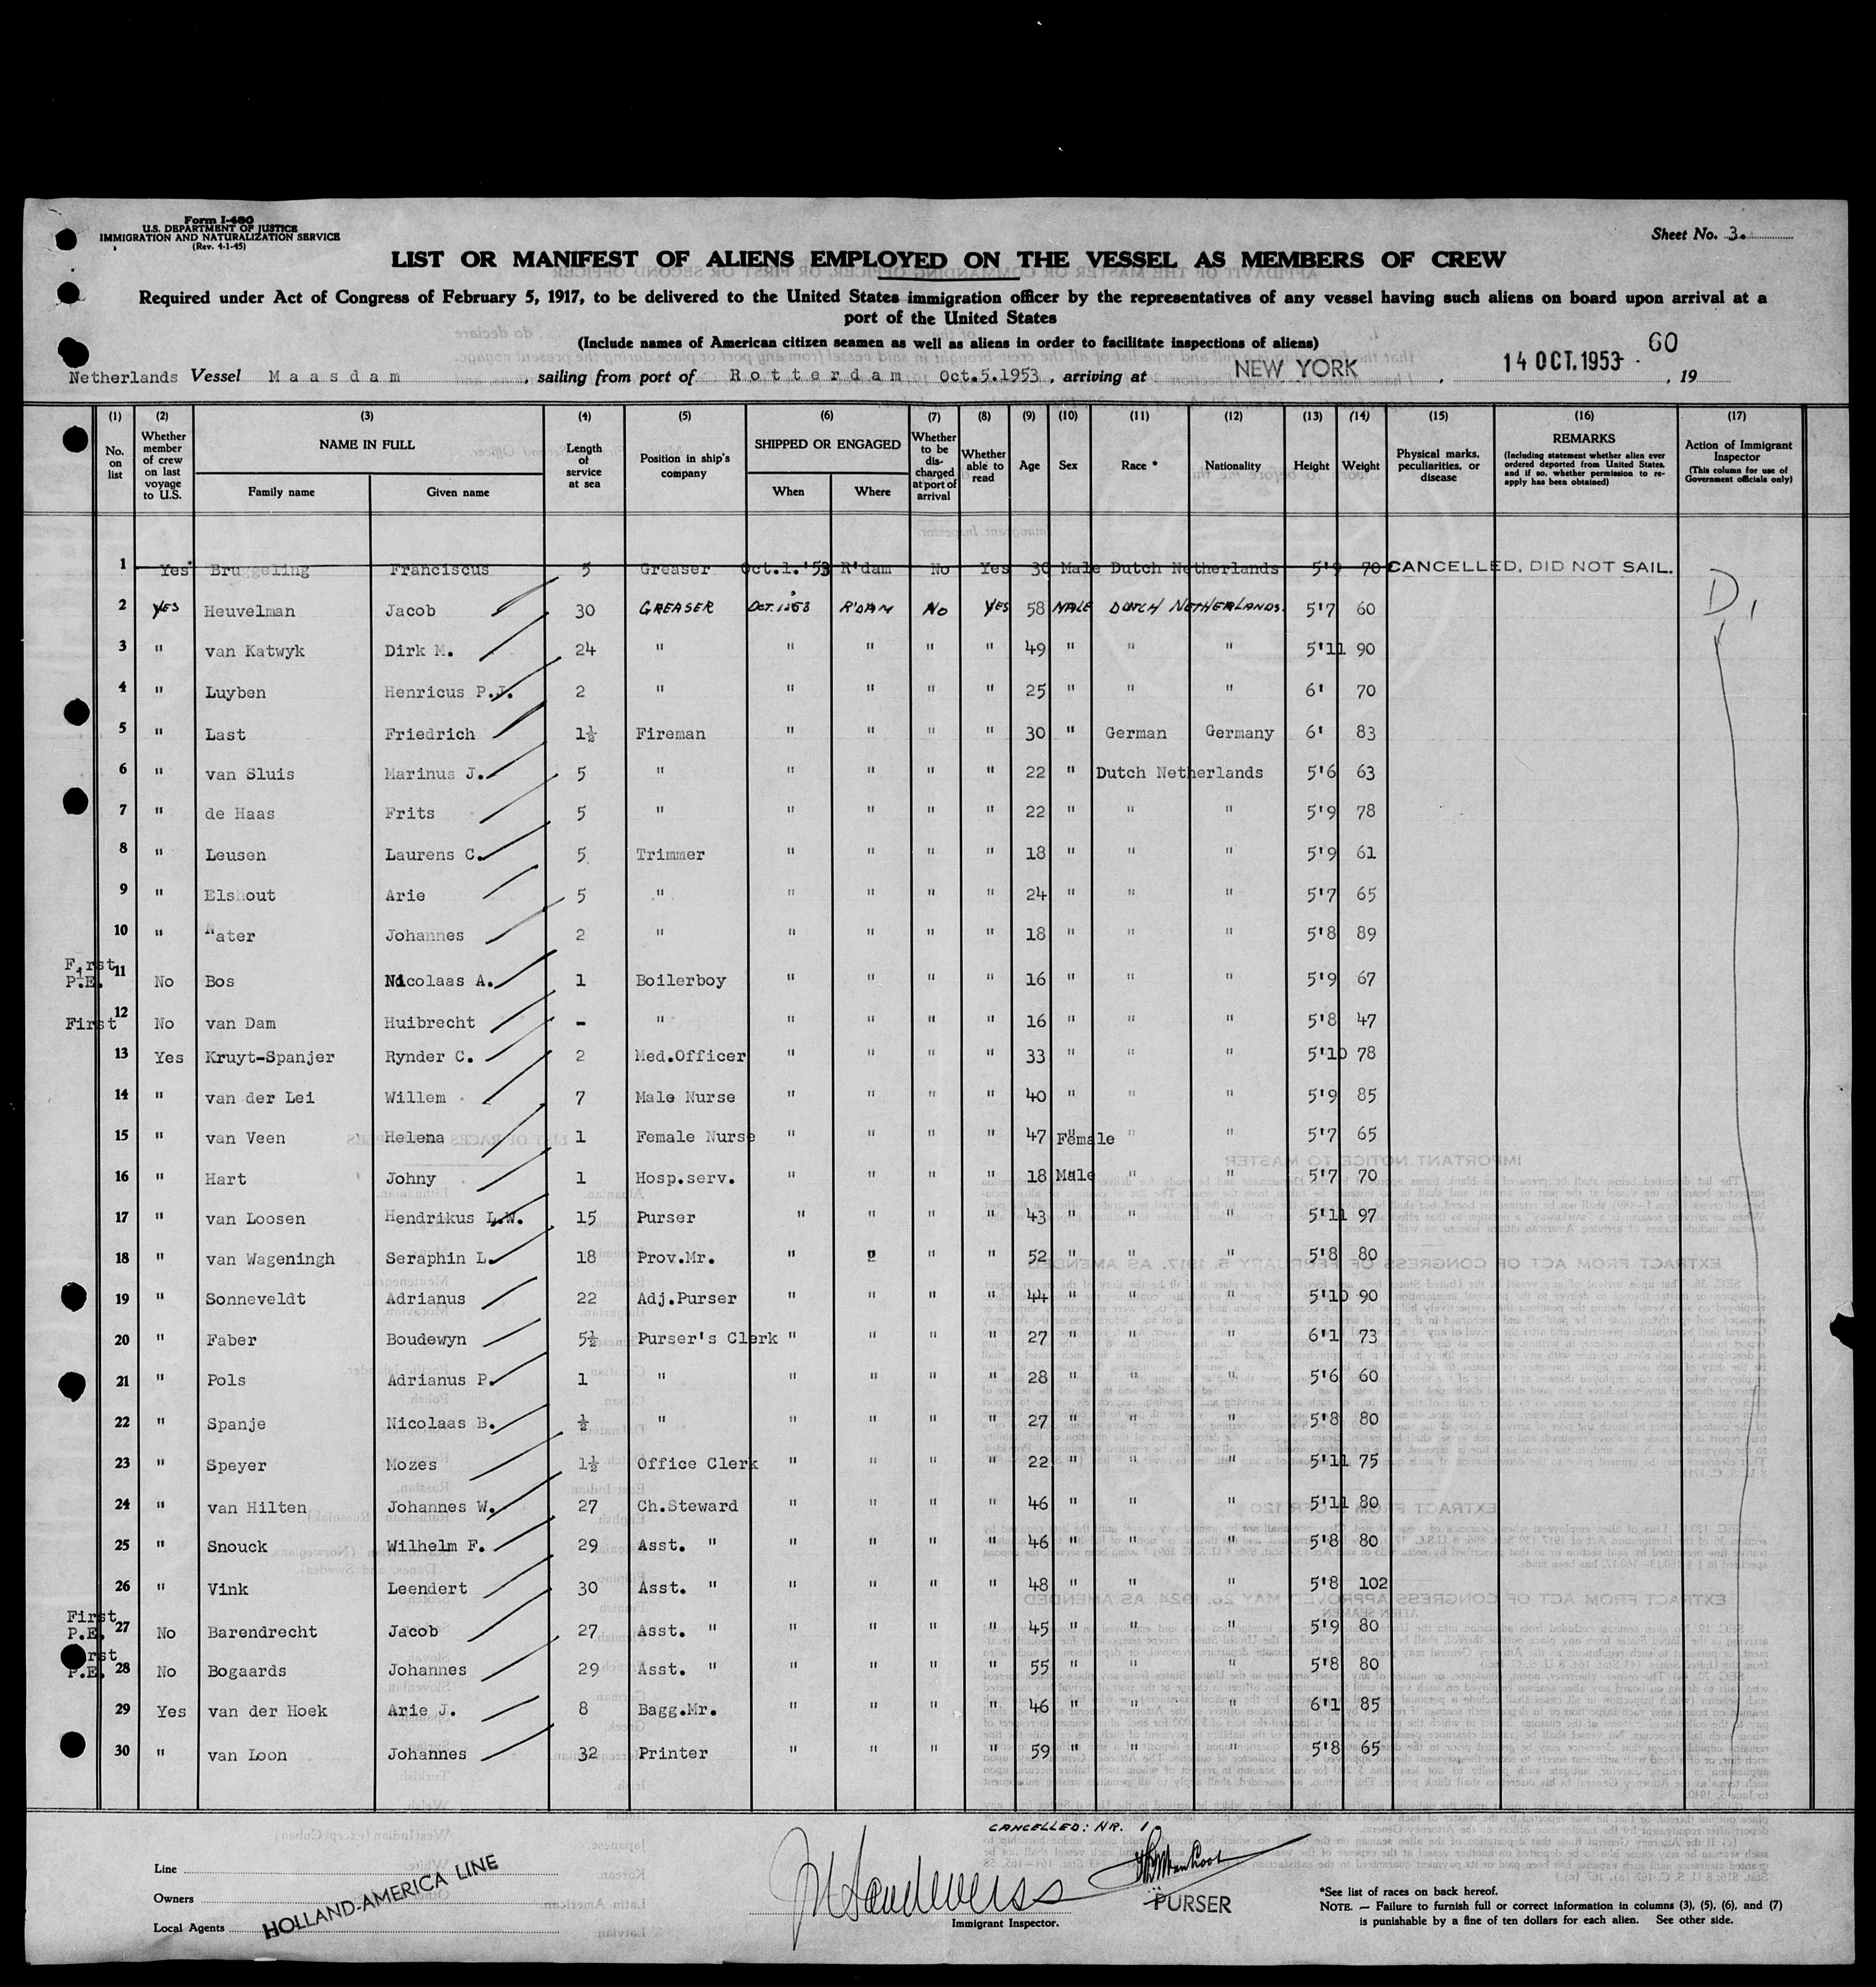 Form I-480
U.S. DEPARTMENT OF JUSTICE
IMMIGRATION AND NATURALIZATION SERVICE
(Rev. 4-1-45)
Sheet No. 3.
LIST OR MANIFEST OF ALIENS EMPLOYED ON THE VESSEL AS MEMBERS OF CREW
Required under Act of Congress of February 5, 1917, to be delivered to the United States immigration officer by the representatives of any vessel having such aliens on board upon arrival at a
port of the United States
(Include names of American citizen seamen as well as aliens in order to facilitate inspections of aliens)
60
Netherlands Vessel Maasdam, sailing from port of Rotterdam Oct.5.1953, arriving at NEW YORK, 14 OCT.1953, 19
(1) (2) (3) (4) (5) (6) (7) (8) (9) (10) (11) (12) (13) (14) (15) (16) (17)
No. on list
Whether member of crew on last voyage to U.S.
NAME IN FULL
Family name
Given name
Length of service at sea
Position in ship's company
SHIPPED OR ENGAGED
When
Where
Whether to be discharged at port of arrival
Whether able to read
Age
Sex
Race *
Nationality
Height
Weight
Physical marks, peculiarities, or disease
REMARKS
(Including statement whether alien ever ordered deported from United States, and if so, whether permission to reapply has been obtained)
Action of Immigrant Inspector
(This column for use of Government officials only)
1 Yes Bruggeling Franciscus 5 Greaser Oct.1.'53 R'dam No Yes 30 Male Dutch Netherlands 5'9 70 CANCELLED, DID NOT SAIL.
2 YES Heuvelman Jacob 30 GREASER OCT. 1.'53 R'DAM NO YES 58 MALE DUTCH NETHERLANDS. 5'7 60 D,
3 " van Katwyk Dirk M. 24 " " " " " 49 " " " 5'11 90
4 " Luyben Henricus P.J. 2 " " " " " 25 " " " 6' 70
5 " Last Friedrich 1½ Fireman " " " " 30 " German Germany 6' 83
6 " van Sluis Marinus J. 5 " " " " " 22 " Dutch Netherlands 5'6 63
7 " de Haas Frits 5 " " " " " 22 " " " 5'9 78
8 " Leusen Laurens C. 5 Trimmer " " " " 18 " " " 5'9 61
9 " Elshout Arie 5 " " " " " 24 " " " 5'7 65
10 " Nater Johannes 2 " " " " " 18 " " " 5'8 89
First P.E. 11 No Bos Nicolaas A. 1 Boilerboy " " " " 16 " " " 5'9 67
First 12 No van Dam Huibrecht - " " " " " 16 " " " 5'8 47
13 Yes Kruyt-Spanjer Rynder C. 2 Med.Officer " " " " 33 " " " 5'10 78
14 " van der Lei Willem 7 Male Nurse " " " " 40 " " " 5'9 85
15 " van Veen Helena 1 Female Nurse " " " " 47 Female " " 5'7 65
16 " Hart Johny 1 Hosp.serv. " " " " 18 Male " " 5'7 70
17 " van Loosen Hendrikus L.W. 15 Purser " " " " 43 " " " 5'11 97
18 " van Wageningh Seraphin L. 18 Prov.Mr. " " " " 52 " " " 5'8 80
19 " Sonneveldt Adrianus 22 Adj.Purser " " " " 44 " " " 5'10 90
20 " Faber Boudewyn 5½ Purser's Clerk " " " " 27 " " " 6'1 73
21 " Pols Adrianus P. 1 " " " " " 28 " " " 5'6 60
22 " Spanje Nicolaas B. ½ " " " " " 27 " " " 5'8 80
23 " Speyer Mozes 1½ Office Clerk " " " " 22 " " " 5'11 75
24 " van Hilten Johannes W. 27 Ch.Steward " " " " 46 " " " 5'11 80
25 " Snouck Wilhelm F. 29 Asst. " " " " " 46 " " " 5'8 80
26 " Vink Leendert 30 Asst. " " " " " 48 " " " 5'8 102
First P.E. 27 No Barendrecht Jacob 27 Asst. " " " " " 45 " " " 5'9 80
First P.E. 28 No Bogaards Johannes 29 Asst. " " " " " 55 " " " 5'8 80
29 Yes van der Hoek Arie J. 8 Bagg.Mr. " " " " 46 " " " 6'1 85
30 " van Loon Johannes 32 Printer " " " " 59 " " " 5'8 65
CANCELLED: NR. 1
Line
Owners
Local Agents
HOLLAND-AMERICA LINE
Immigrant Inspector.
PURSER
*See list of races on back hereof.
NOTE. — Failure to furnish full or correct information in columns (3), (5), (6), and (7)
is punishable by a fine of ten dollars for each alien. See other side.